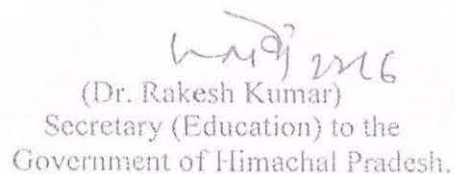 (Dr. Rakesh Kumar)
Secretary (Education) to the
Government of Himachal Pradesh.